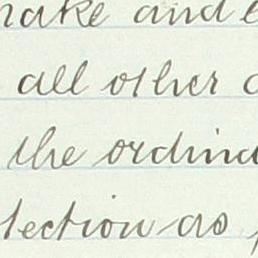 make and e
all other
the ordina
lection as